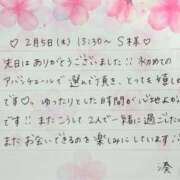 ♡ 2月5日(水) 15:30〜 S様 ♡
先日はありがとうございました!! 初めての
アバンチュールで選んで頂き、とっても嬉しい
です♡。ゆったりとした時間が心地よかった
です!! またこうして2人で一緒に過ごしたい
またお会いできるのを楽しみにしています♪
湊